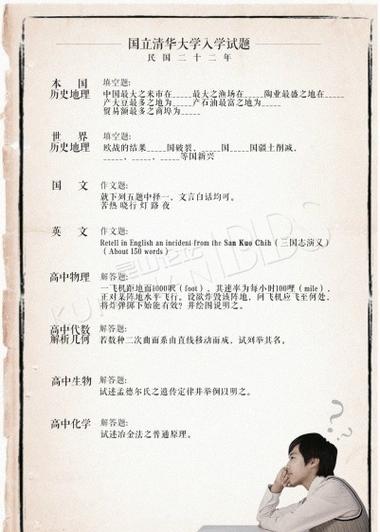 国立清华大学入学试题
民国二十二年
本国历史地理
填空题:
中国最大之米市在_____最大之渔场在_____陶业最盛之地在_____
产大豆最多之地为_____产石油最富之地为_____
贸易额最多之商埠为_____
世界历史地理
填空题:
欧战的结果_____国破裂,_____国_____国疆土削减,
_____,_____,_____等国新兴
国文
作文题:
就下列五题中择一,文言白话均可。
苦热 晓行 灯 路 夜
英文
作文题:
Retell in English an incident from the San Kuo Chih(三国志演义)
(About 150 words)
高中物理
解答题:
一飞机距地面4000呎(foot),其速率为每小时100哩(mile),
正对某阵地水平飞行。设欲炸毁该阵地,问飞机应飞至何处,
将炸弹掷下始能有效?并绘图说明之。
高中代数
解析几何
解答题:
若数种二次曲面系由直线移动而成,试列举其名。
高中生物
解答题:
试述孟德尔氏之遗传定律并举例以明之。
高中化学
解答题:
试述冶金法之普通原理。